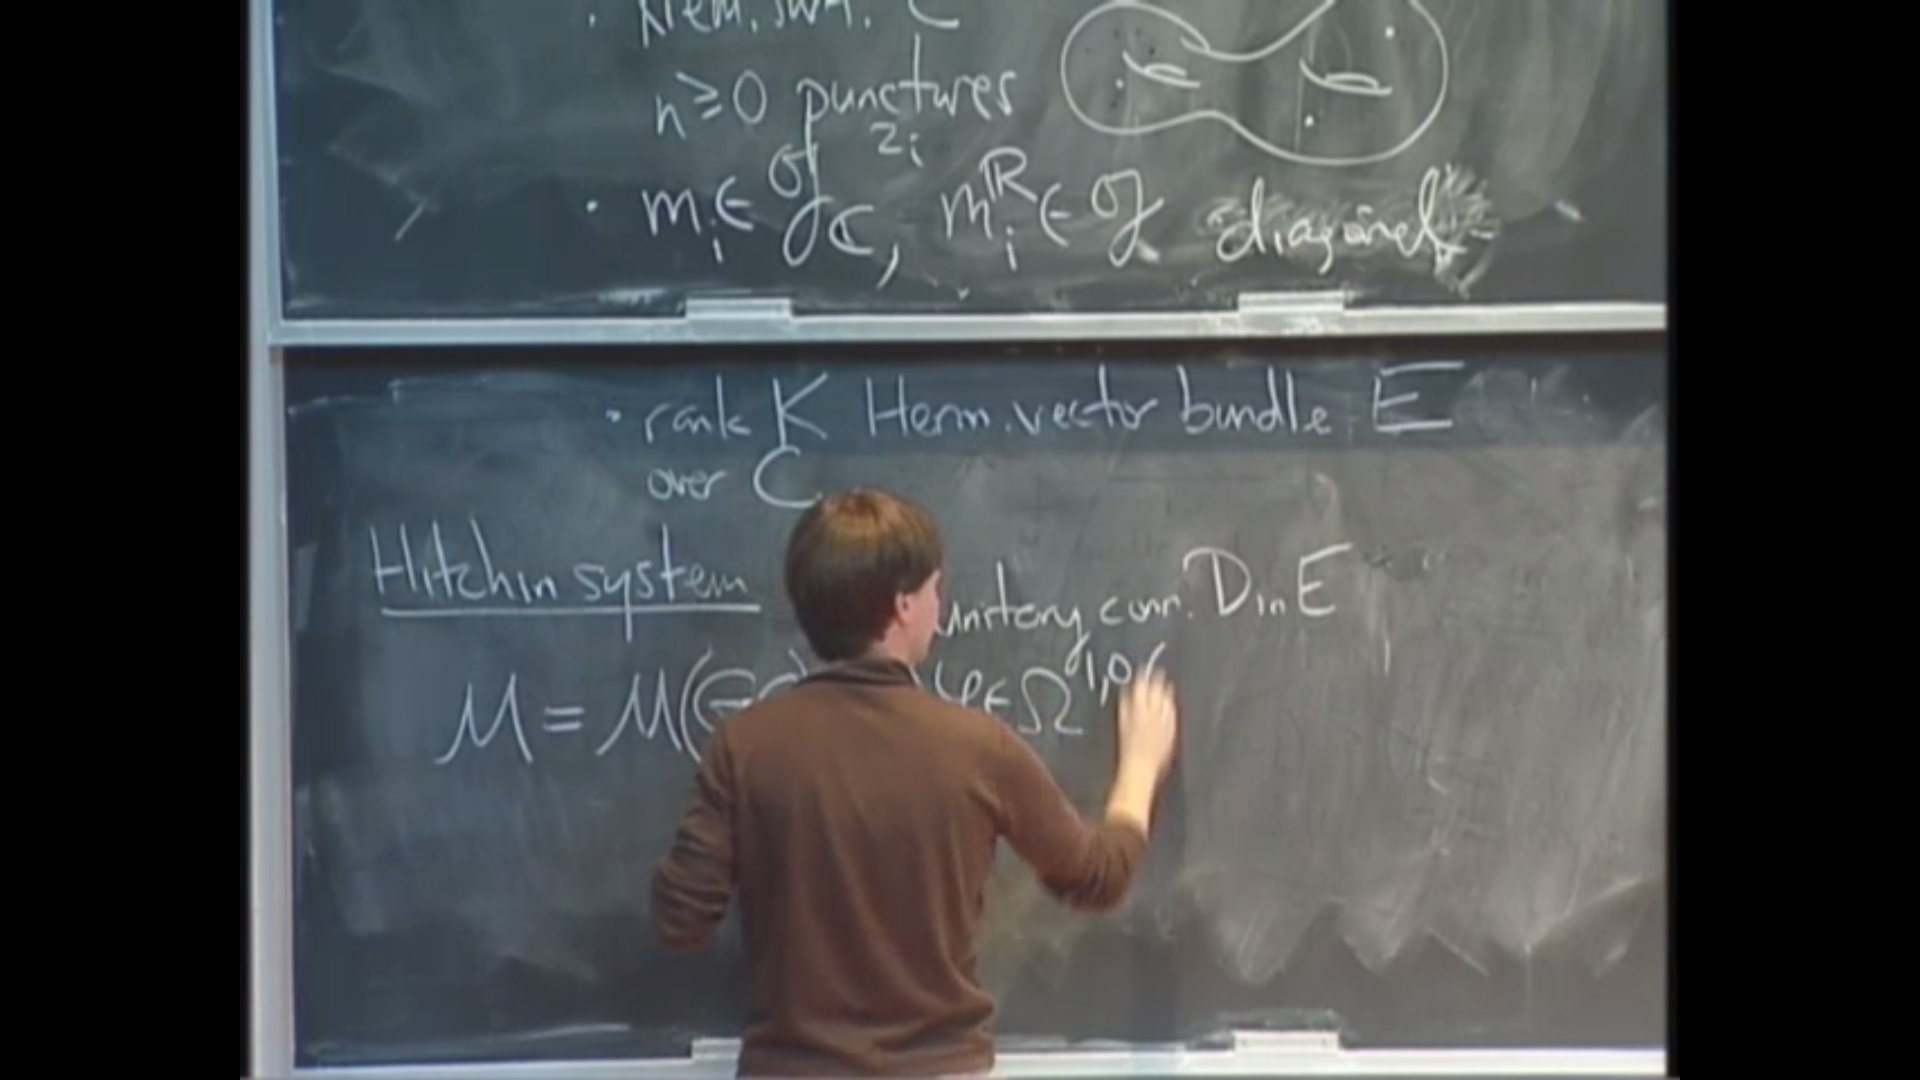 · Riem. surf. C
n≥0 punctures
z_i
· m_i ∈ 𝔤_ℂ, m_i^ℝ ∈ 𝔤 diagonal
· rank K Herm. vector bundle E
over C
Hitchin system
unitary conn. D in E
M = M(G, φ ∈ Ω^{1,0}(